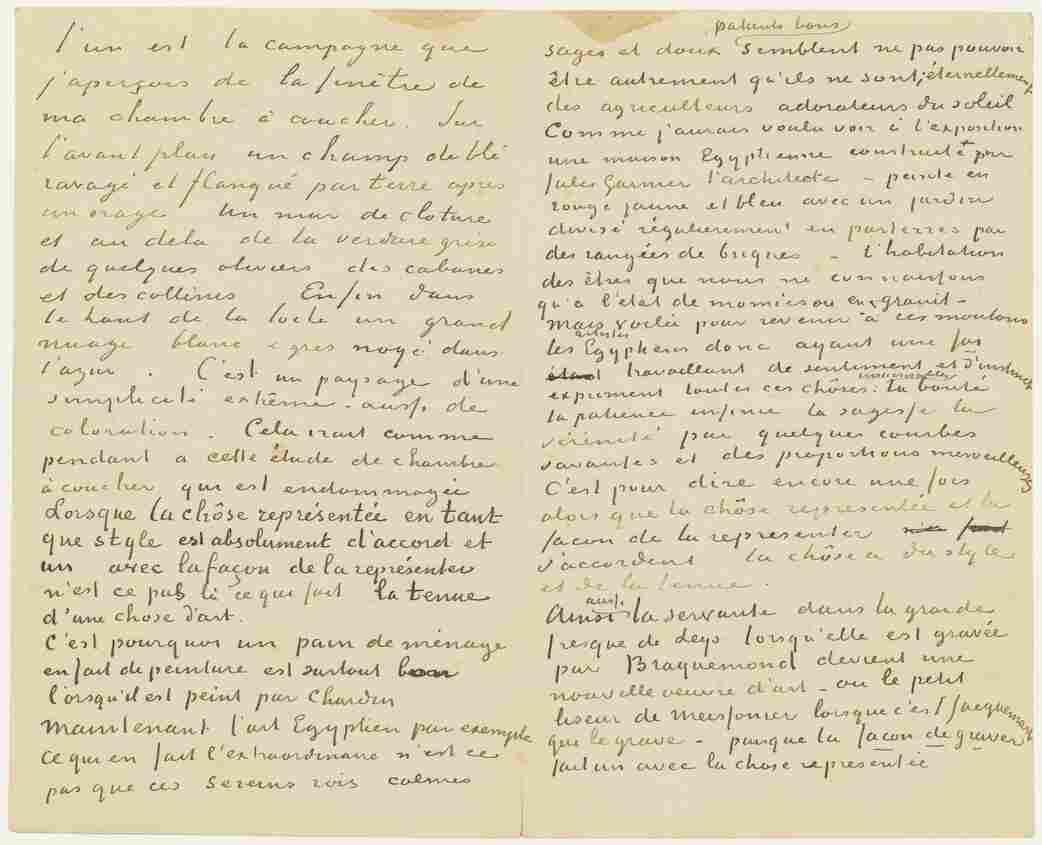 l'un est la campagne que
j'aperçois de la fenêtre de
ma chambre à coucher. Sur
l'avant plan un champ de blé
ravagé et flanqué par terre après
un orage Un mur de cloture
et au dela de la verdure grise
de quelques oliviers des cabanes
et des collines Enfin dans
le haut de la toile un grand
nuage blanc & gris noyé dans
l'azur. C'est un paysage d'une
simplicité extrême – aussi de
coloration. Cela irait comme
pendant a cette étude de chambre
à coucher qui est endommagée
Lorsque la chôse représentée en tant
que style est absolument d'accord et
un avec la façon de la représenter
n'est ce pas là ce qui fait la tenue
d'une chose d'art.
C'est pourquoi un pain de ménage
en fait de peinture est surtout bon
lorsqu'il est peint par Chardin
Maintenant l'art Egyptien par exemple
ce qui en fait l'extraordinaire n'est ce
pas que ces sereins rois calmes
patients bons
sages et doux semblent ne pas pouvoir
être autrement qu'ils ne sont; éternellement
des agriculteurs adorateurs du soleil
Comme j'aurais voulu voir à l'exposition
une maison Egyptienne construite par
Jules Garnier l'architecte – peinte en
rouge jaune et bleu avec un jardin
divisé régulierement en parterres par
des rangées de briques – l'habitation
des êtres que nous ne connaissons
qu'à l'état de momies ou en granit –
Mais voila pour revenir à ces moutons
artistes
les Egyptiens donc ayant une foi
travaillant de sentiment et d'instinct
expriment toutes ces chôses: la bonté
la patience infinie la sagesse la
sérénité par quelques courbes
savantes et des proportions merveilleuses
C'est pour dire encore une fois
alors que la chôse représentée et la
facon de la representer
s'accordent la chôse a du style
et de la tenue.
aussi
Ainsi la servante dans la grande
fresque de Leys lorsqu'elle est gravée
par Braquemond devient une
nouvelle oeuvre d'art – ou le petit
liseur de Meissonier lorsque c'est Jacquemart
qui le grave – puisque la facon de graver
fait un avec la chose représentée